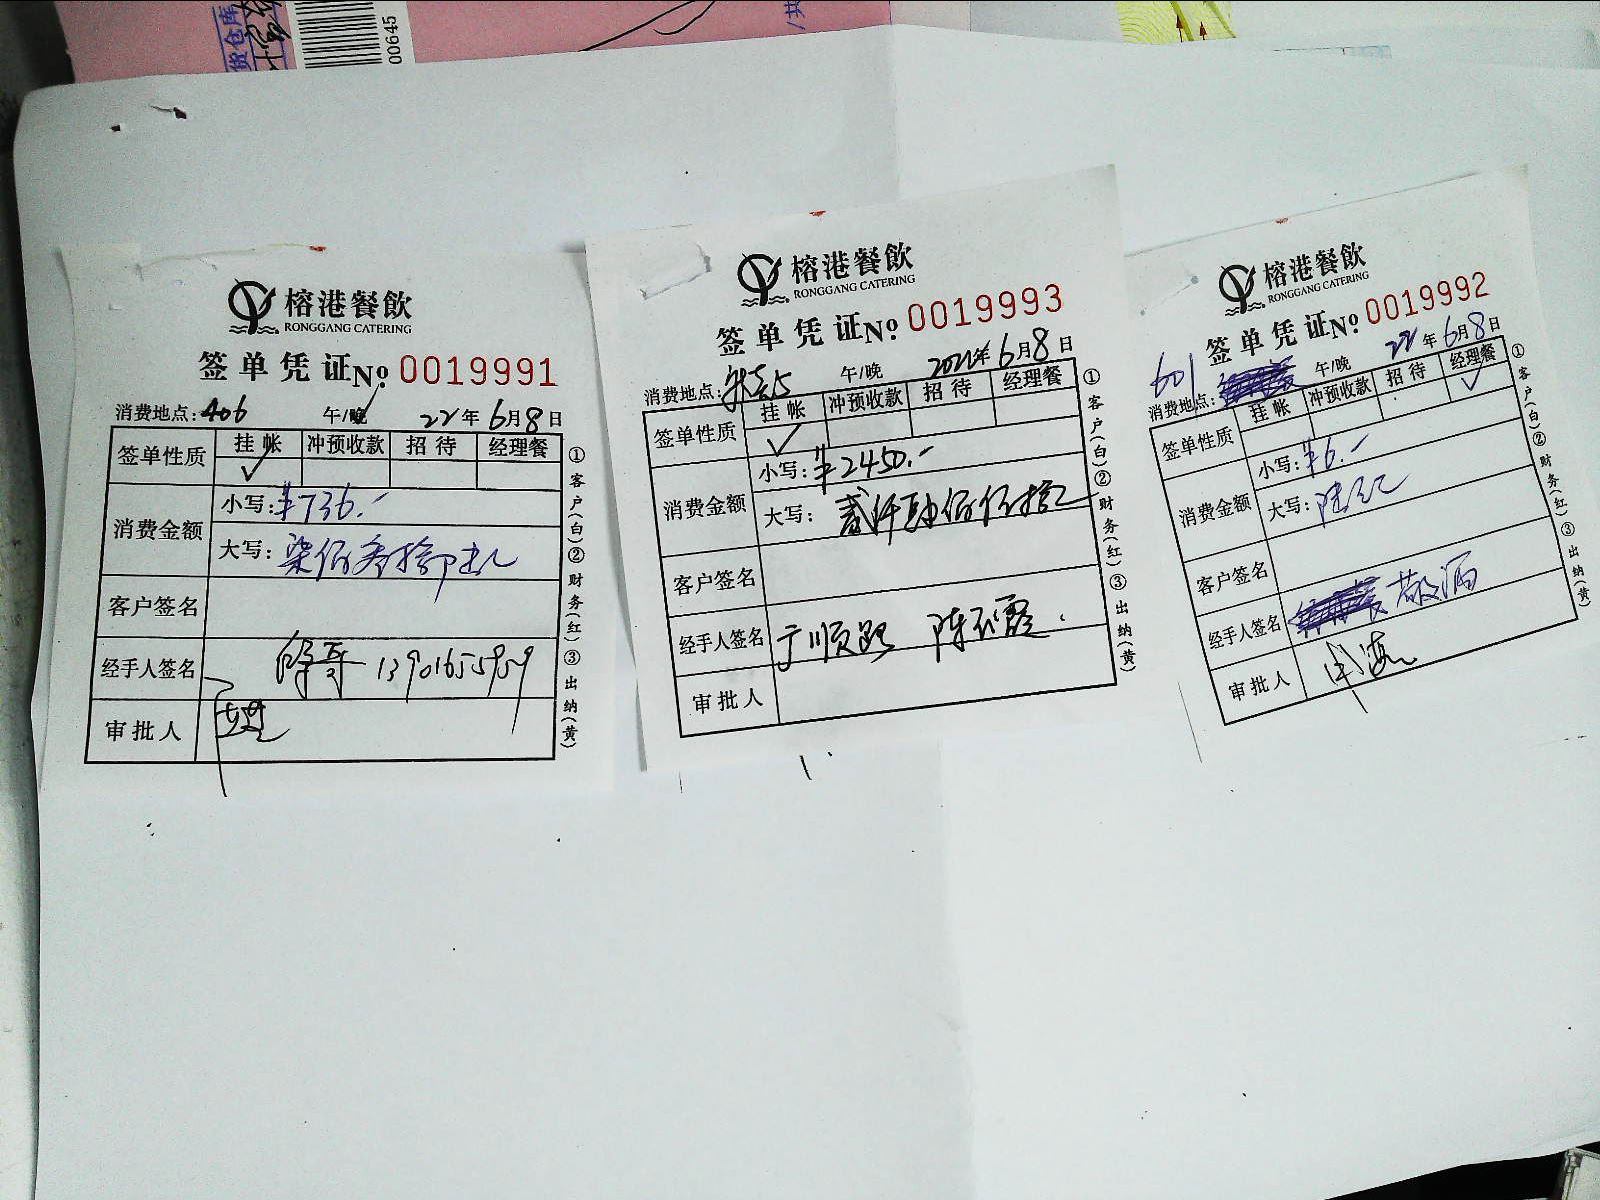 货仓库
00645
榕港餐飲
RONGGANG CATERING
签单凭证 No. 0019991
消费地点: 406 午/晚 22年6月8日
签单性质 挂帐 冲预收款 招待 经理餐
✓
消费金额 小写: ¥736.-
大写: 柒佰叁拾陆元
客户签名
经手人签名 13901655959
审批人
①客户(白)②财务(红)③出纳(黄)
榕港餐飲
RONGGANG CATERING
签单凭证 No. 0019993
消费地点: 午/晚 2022年6月8日
签单性质 挂帐 冲预收款 招待 经理餐
✓
消费金额 小写: ¥2450.-
大写: 贰仟肆佰伍拾元
客户签名
经手人签名
审批人
①客户(白)②财务(红)③出纳(黄)
榕港餐飲
RONGGANG CATERING
签单凭证 No. 0019992
601
消费地点: 午/晚 22年6月8日
签单性质 挂帐 冲预收款 招待 经理餐
✓
消费金额 小写: ¥6.-
大写: 陆元
客户签名
经手人签名 敬酒
审批人
①客户(白)②财务(红)③出纳(黄)